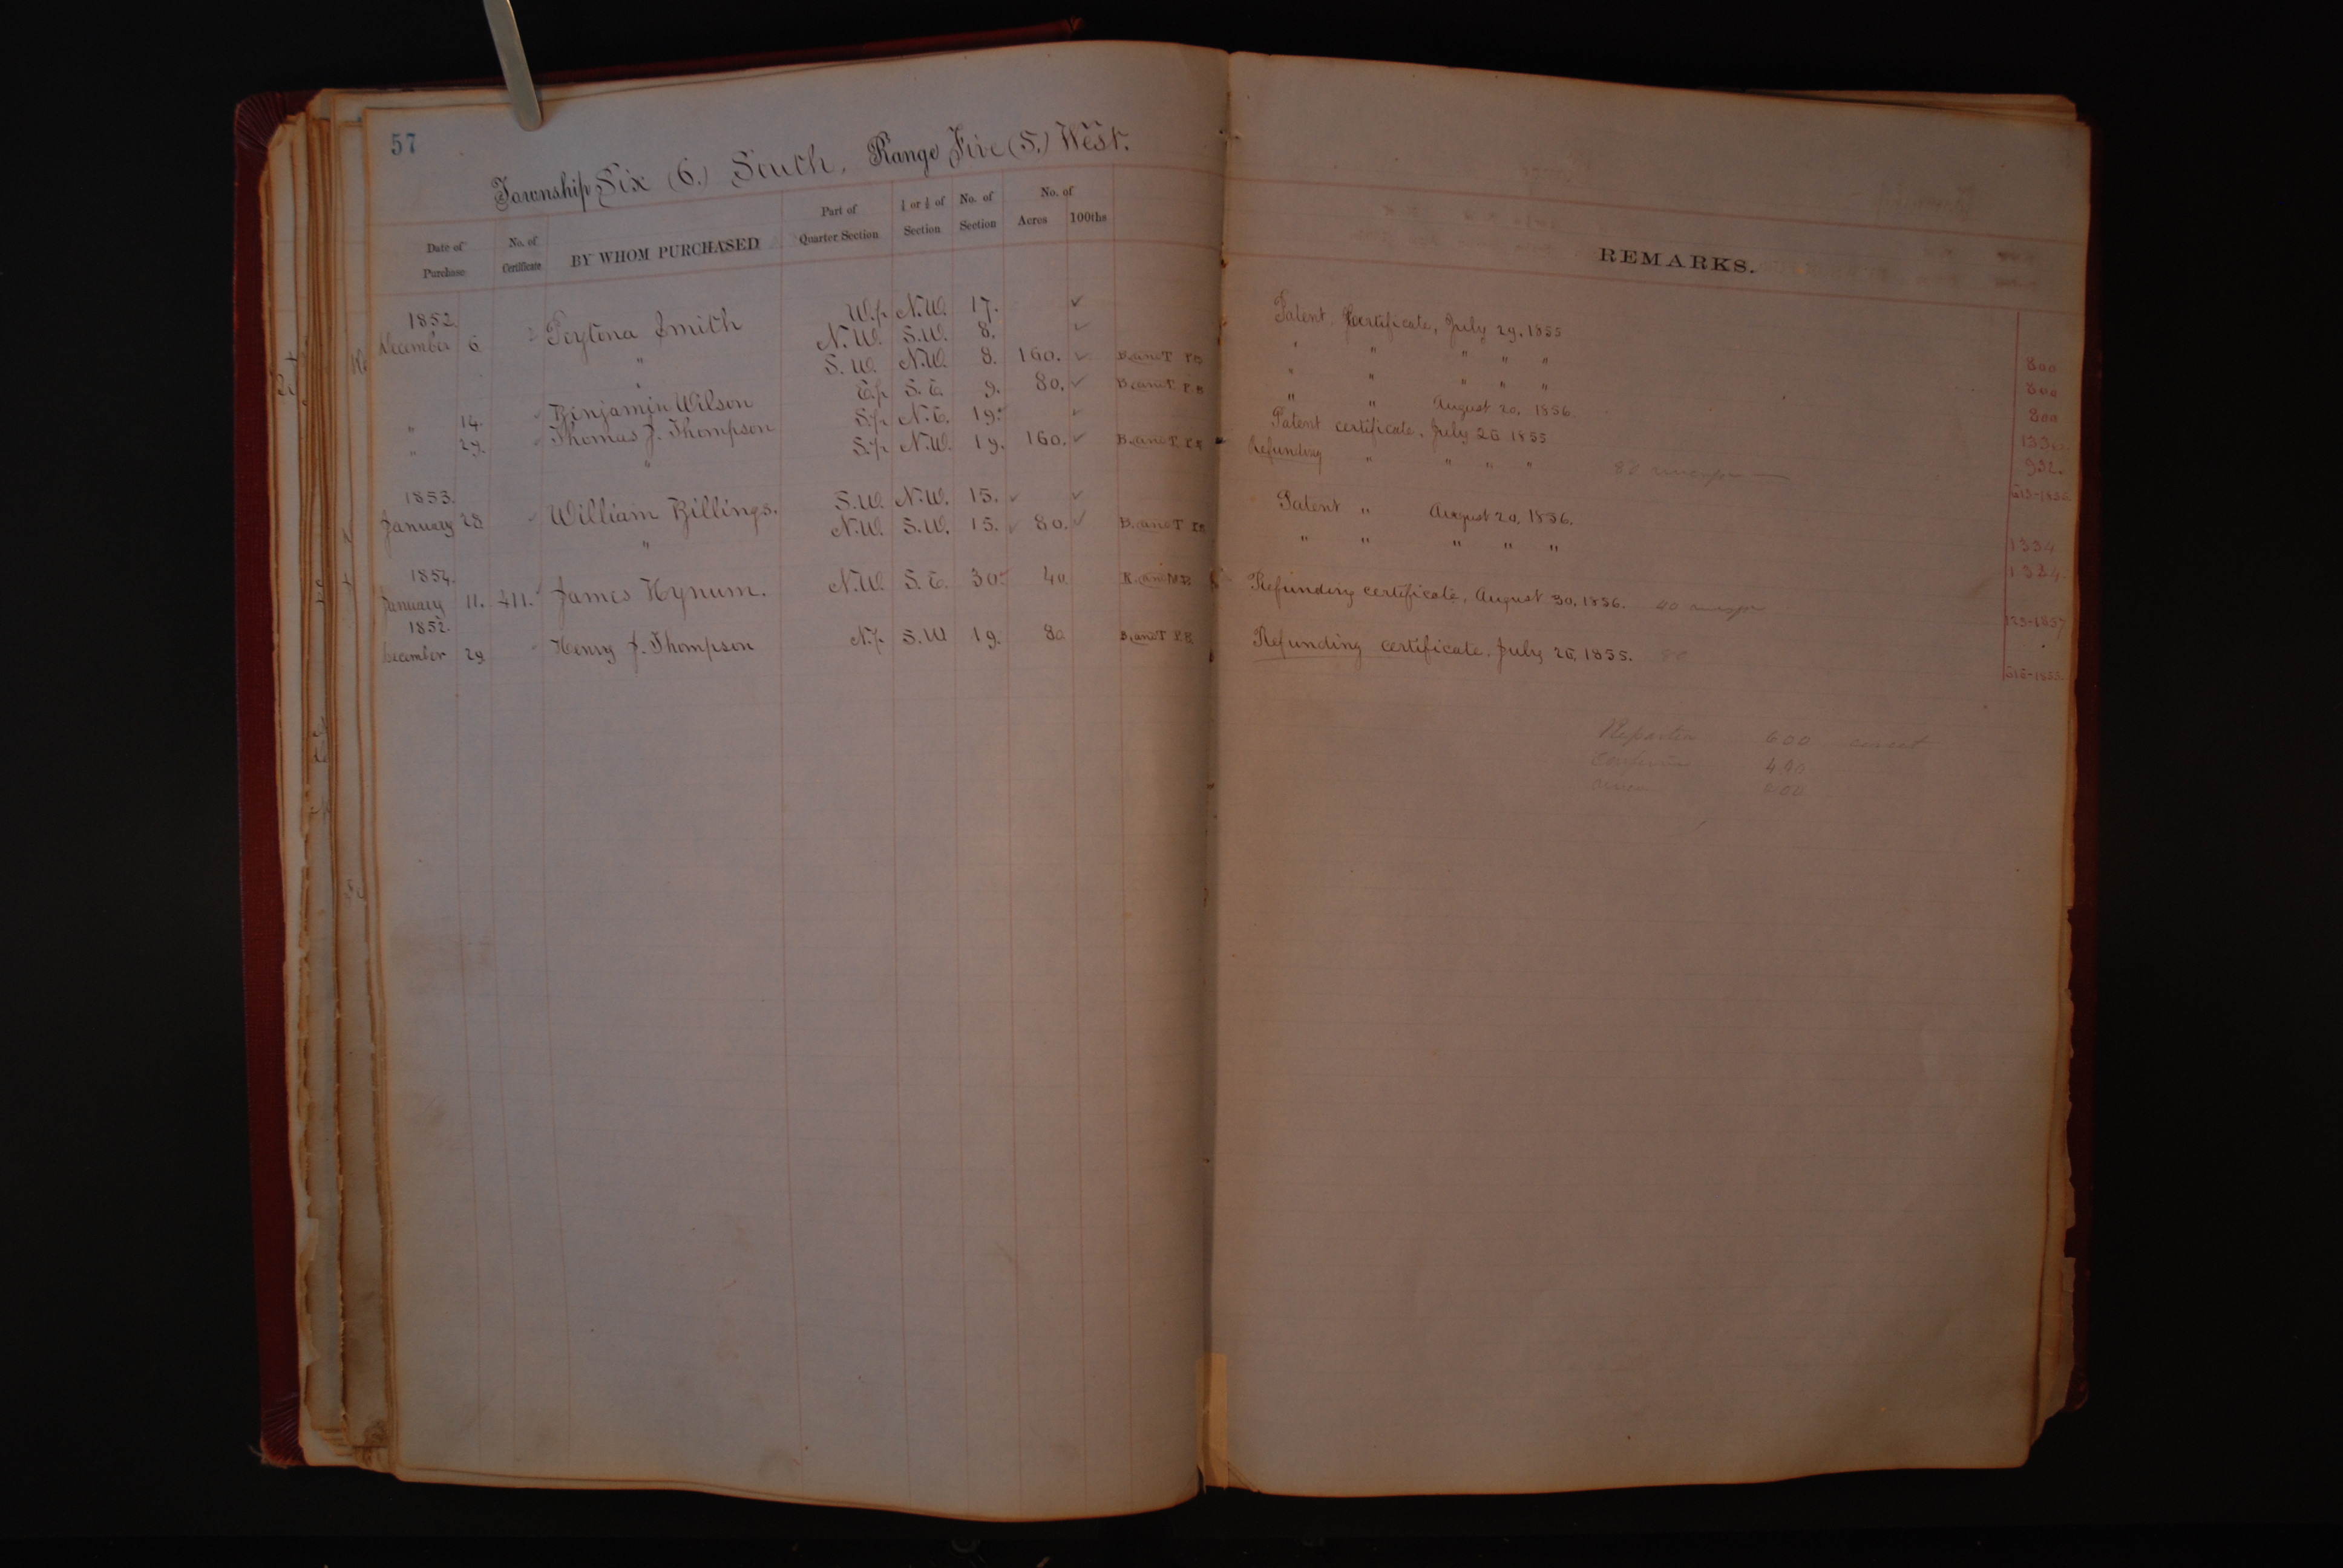 57
Township Six (6.) South, Range Five (5.) West.
Date of Purchase No. of Certificate BY WHOM PURCHASED Part of Quarter Section Section No. of Section No. of Acres 100ths
REMARKS.
1852.
December 6 Peytona Smith W.p N.W. 17. ✓ Patent Certificate, July 29, 1855 800
" N.W. S.W. 8. ✓ " " " " " 800
" S.W. N.W. 8. 160. ✓ B. and T P.B " " " " " 800
" 14. Benjamin Wilson E.p S.E. 9. 80. ✓ B. and T P.B " " August 20, 1856.
" 29. Thomas J. Thompson S.p N.E. 19. ✓ Patent certificate, July 26 1855 932.
" S.p N.W. 19. 160. ✓ B. and T P.B Refunding " " " " 80
1853.
January 28 William Billings. S.W. N.W. 15. ✓ ✓ Patent " August 20, 1856. 1334
" N.W. S.W. 15. ✓ 80. ✓ B. and T P.B " " " " " 1334
1854.
January 11. 411. James Hynum. N.W. S.E. 30. 40. Refunding certificate, August 30, 1856. 40 123-1857
1852.
December 29 Henry J. Thompson N.p S.W 19. 80 B. and T P.B. Refunding certificate, July 26, 1855. 80
600
400
200